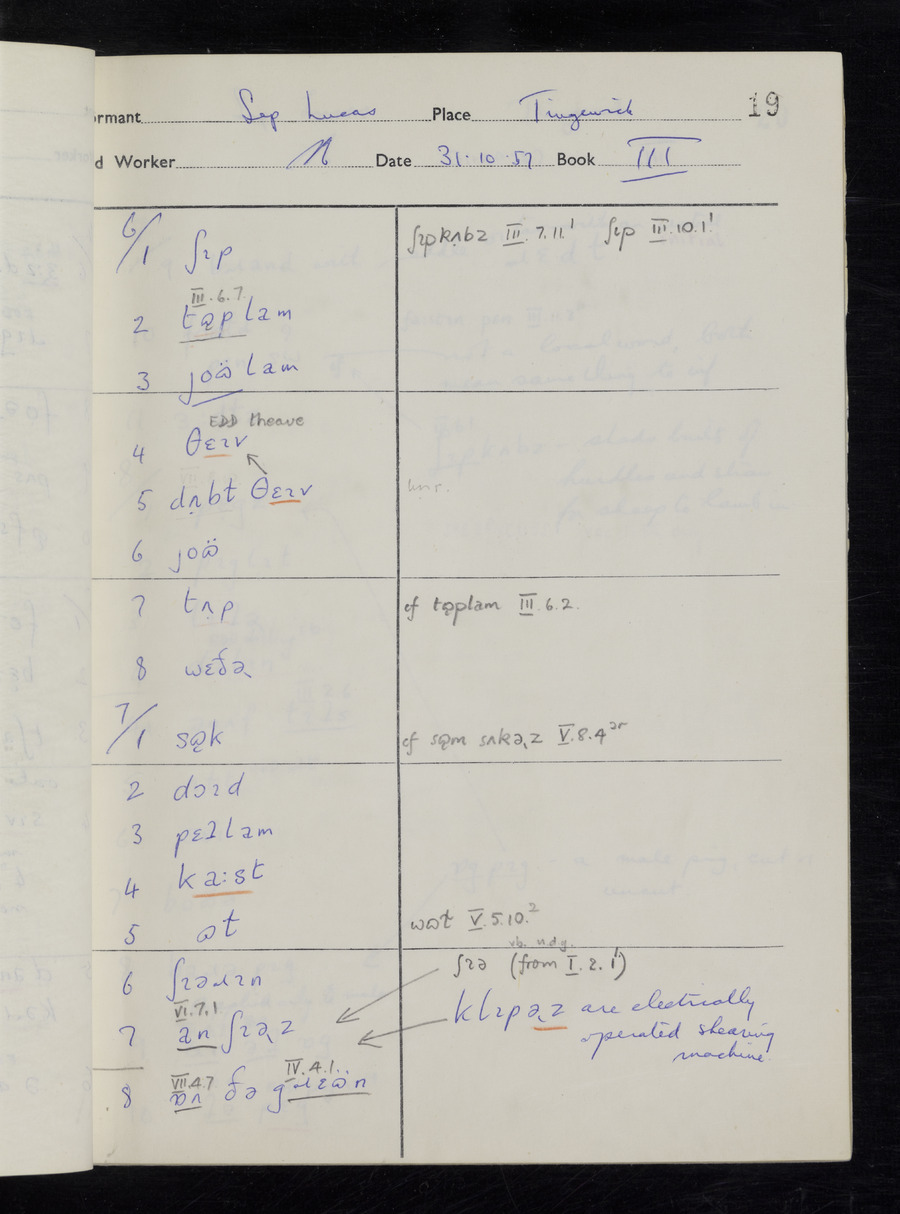 rmant Sep Lucas Place Tingewick 19
d Worker Date 31.10.57 Book III
6/1 ʃɪp ʃɪpkʌbz III.7.11¹ ʃɪp III.10.1¹
III.6.7.
2 tɒ̈plam
3 joɷ̈ lam
EDD theave
4 θɛɪv
5 dʌbt θɛɪv
6 joɷ̈
7 tʌp cf tɒplam III.6.2.
8 wɛðə
7/1 sɒk cf sɒm sʌkəz V.8.4
2 dɔɪd
3 pɛɫlam
4 ka:st
5 ɷt wɷt V.5.10.²
vb. n.d.g.
6 ʃɪəɹɪn ʃɪə (from I.2.1¹)
VI.7.1
7 an ʃɪəz klɪpəz are electrically
operated shearing
machine
VII.4.7 IV.4.1..
8 ɒn ðə gɹɛɷn